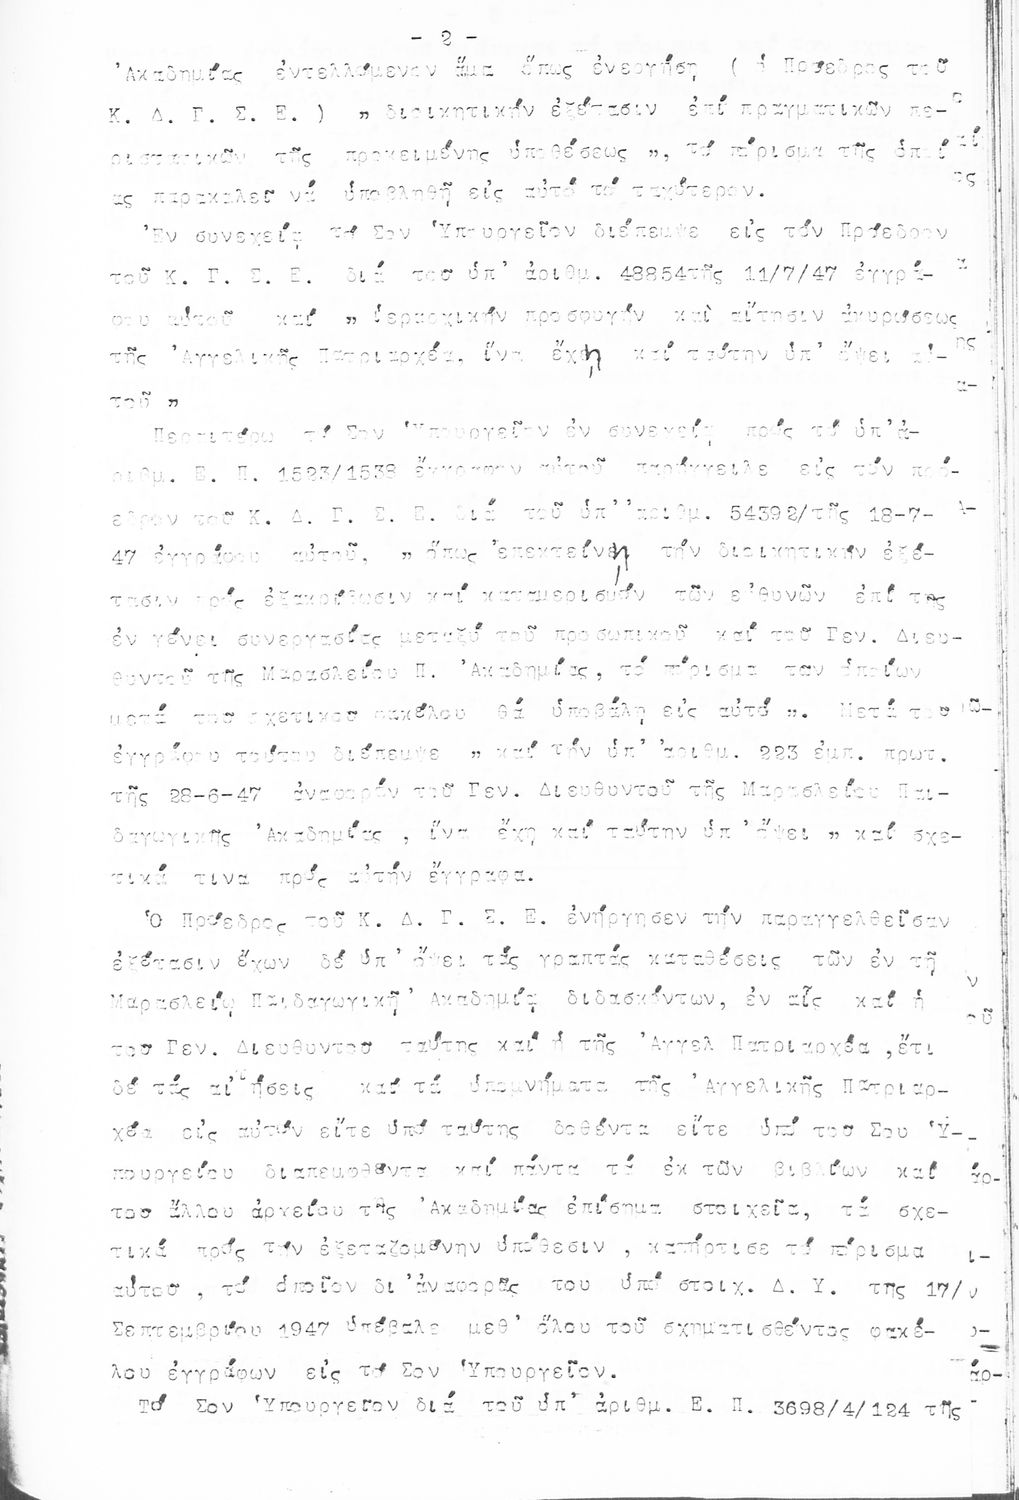 - 2 -
'Ακαδημίας ἐντελλόμενον ἅμα ὅπως ἐνεργήσῃ ( ὁ Πρόεδρος τοῦ
Κ. Δ. Γ. Σ. Ε. ) „ διοικητικήν ἐξέτασιν ἐπί πραγματικῶν πε-
ριστατικῶν τῆς προκειμένης ὑποθέσεως „, τό πόρισμα τῆς ὁποί
ας παρακαλεῖ νά ὑποβληθῇ εἰς αὐτό τό ταχύτερον.
'Εν συνεχείᾳ τό Σον Ὑπουργεῖον διέπεμψε εἰς τόν Πρόεδρον
τοῦ Κ. Γ. Σ. Ε. διά του ὑπ' ἀριθμ. 48854τῆς 11/7/47 ἐγγρά-
φου αὐτοῦ καί „ ἱεραρχικήν προσφυγήν καὶ αἴτησιν ἀκυρώσεως
τῆς 'Αγγελικῆς Πατριαρχέα, ἵνα ἔχῃ καί ταύτην ὑπ' ὄψει αὐ-
τοῦ „
Περαιτέρω τό Σον Ὑπουργεῖον ἐν συνεχείᾳ πρός τό ὑπ'ἀ-
ριθμ. Ε. Π. 1523/1538 ἔγγραφον αὐτοῦ παρήγγειλε εἰς τόν πρό-
εδρον τοῦ Κ. Δ. Γ. Σ. Ε. διά τοῦ ὑπ' ἀριθμ. 54392/τῆς 18-7-
47 ἐγγράφου αὐτοῦ, „ ὅπως 'επεκτείνῃ τήν διοικητικήν ἐξέ-
τασιν πρός ἐξακρίβωσιν καί καταμερισμόν τῶν εὐθυνῶν ἐπί της
ἐν γένει συνεργασίας μεταξύ τοῦ προσωπικοῦ καί τοῦ Γεν. Διευ-
θυντοῦ τῆς Μαρασλείου Π. 'Ακαδημίας, τό πόρισμα των ὁποίων
μετά του σχετικου φακέλου θά ὑποβάλῃ εἰς αὐτό „. Μετά του
ἐγγράφου τούτου διέπεμψε „ καί τήν ὑπ' ἀριθμ. 223 ἐμπ. πρωτ.
τῆς 28-6-47 ἀναφοράν τοῦ Γεν. Διευθυντοῦ τῆς Μαρασλείου Παι-
δαγωγικῆς 'Ακαδημίας , ἵνα ἔχῃ καί ταύτην ὑπ 'ὄψει „ καί σχε-
τικά τινα πρός αὐτήν ἔγγραφα.
Ὁ Πρόεδρος τοῦ Κ. Δ. Γ. Σ. Ε. ἐνήργησεν τήν παραγγελθεῖσαν
ἐξέτασιν ἔχων δέ ὑπ' ὄψει τάς γραπτάς καταθέσεις τῶν ἐν τῇ
Μαρασλείῳ Παιδαγωγικῇ 'Ακαδημίᾳ διδασκόντων, ἐν αἷς καί ἡ
του Γεν. Διευθυντου ταύτης καί ἡ τῆς 'Αγγελ Πατριαρχέα ,ἔτι
δέ τάς αἰτήσεις καί τά ὑπομνήματα τῆς 'Αγγελικῆς Πατριαρ-
χέα εἰς αὐτόν εἴτε ὑπό ταύτης δοθέντα εἴτε ὑπό του Σου Ὑ-
πουργείου διαπεμφθέντα καί πάντα τά ἐκ τῶν βιβλίων καί
του ἄλλου ἀρχείου τῆς 'Ακαδημίας ἐπίσημα στοιχεῖα, τά σχε-
τικά πρός τήν ἐξεταζομένην ὑπόθεσιν , κατήρτισε τό πόρισμα
αὐτου , τό ὁποῖον δι'ἀναφορᾶς του ὑπό στοιχ. Δ. Υ. της 17/
Σεπτεμβρίου 1947 ὑπέβαλε μεθ' ὅλου τοῦ σχηματισθέντος φακέ-
λου ἐγγράφων εἰς τό Σον Ὑπουργεῖον.
Τό Σον Ὑπουργεῖον διά τοῦ ὑπ' ἀριθμ. Ε. Π. 3698/4/124 τῆς